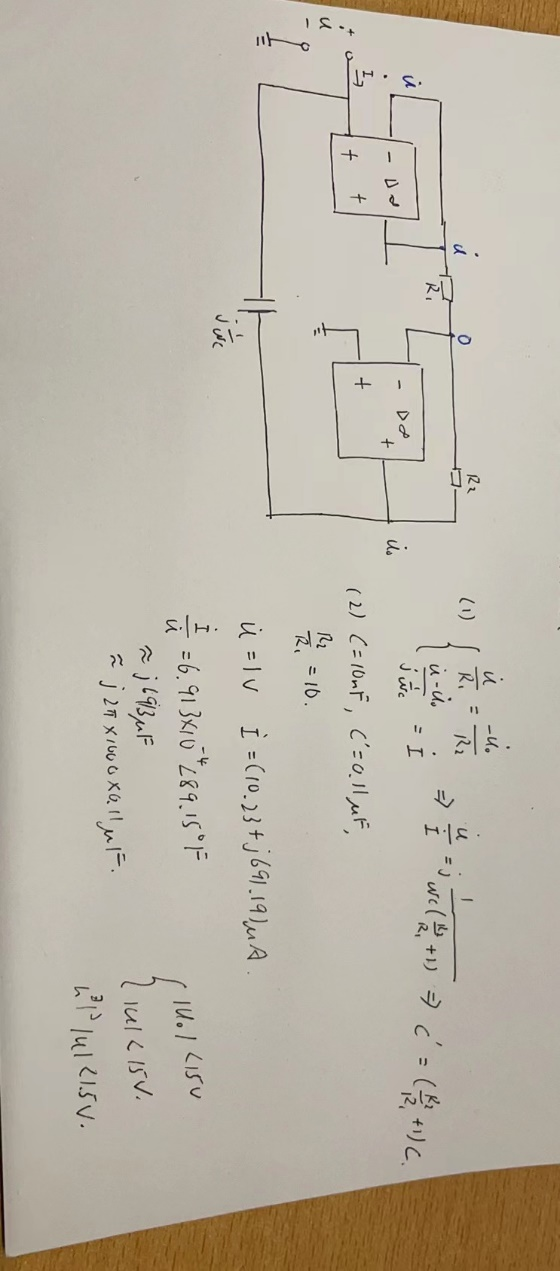 u̇
u̇
R₁
0
R₂
İ
- ▷∞
+ +
- ▷∞
+ +
u̇
+
-
u̇₀
j 1/ωc
(1) { u̇/R₁ = -u̇₀/R₂
(u̇-u̇₀)/(j 1/ωc) = İ ⇒ u̇/İ = j 1/(ωc(R₂/R₁+1)) ⇒ C' = (R₂/R₁+1)C.
(2) C=10nF, C'=0.11μF,
R₂/R₁ = 10.
u̇ = 1V İ = (10.23+j691.19)μA.
İ/u̇ = 6.913×10⁻⁴∠89.15°F
≈ j 691.3μF
≈ j 2π×1000×0.11μF.
{ |u₀| <15V
|u| <15V.
|u| <1.5V.